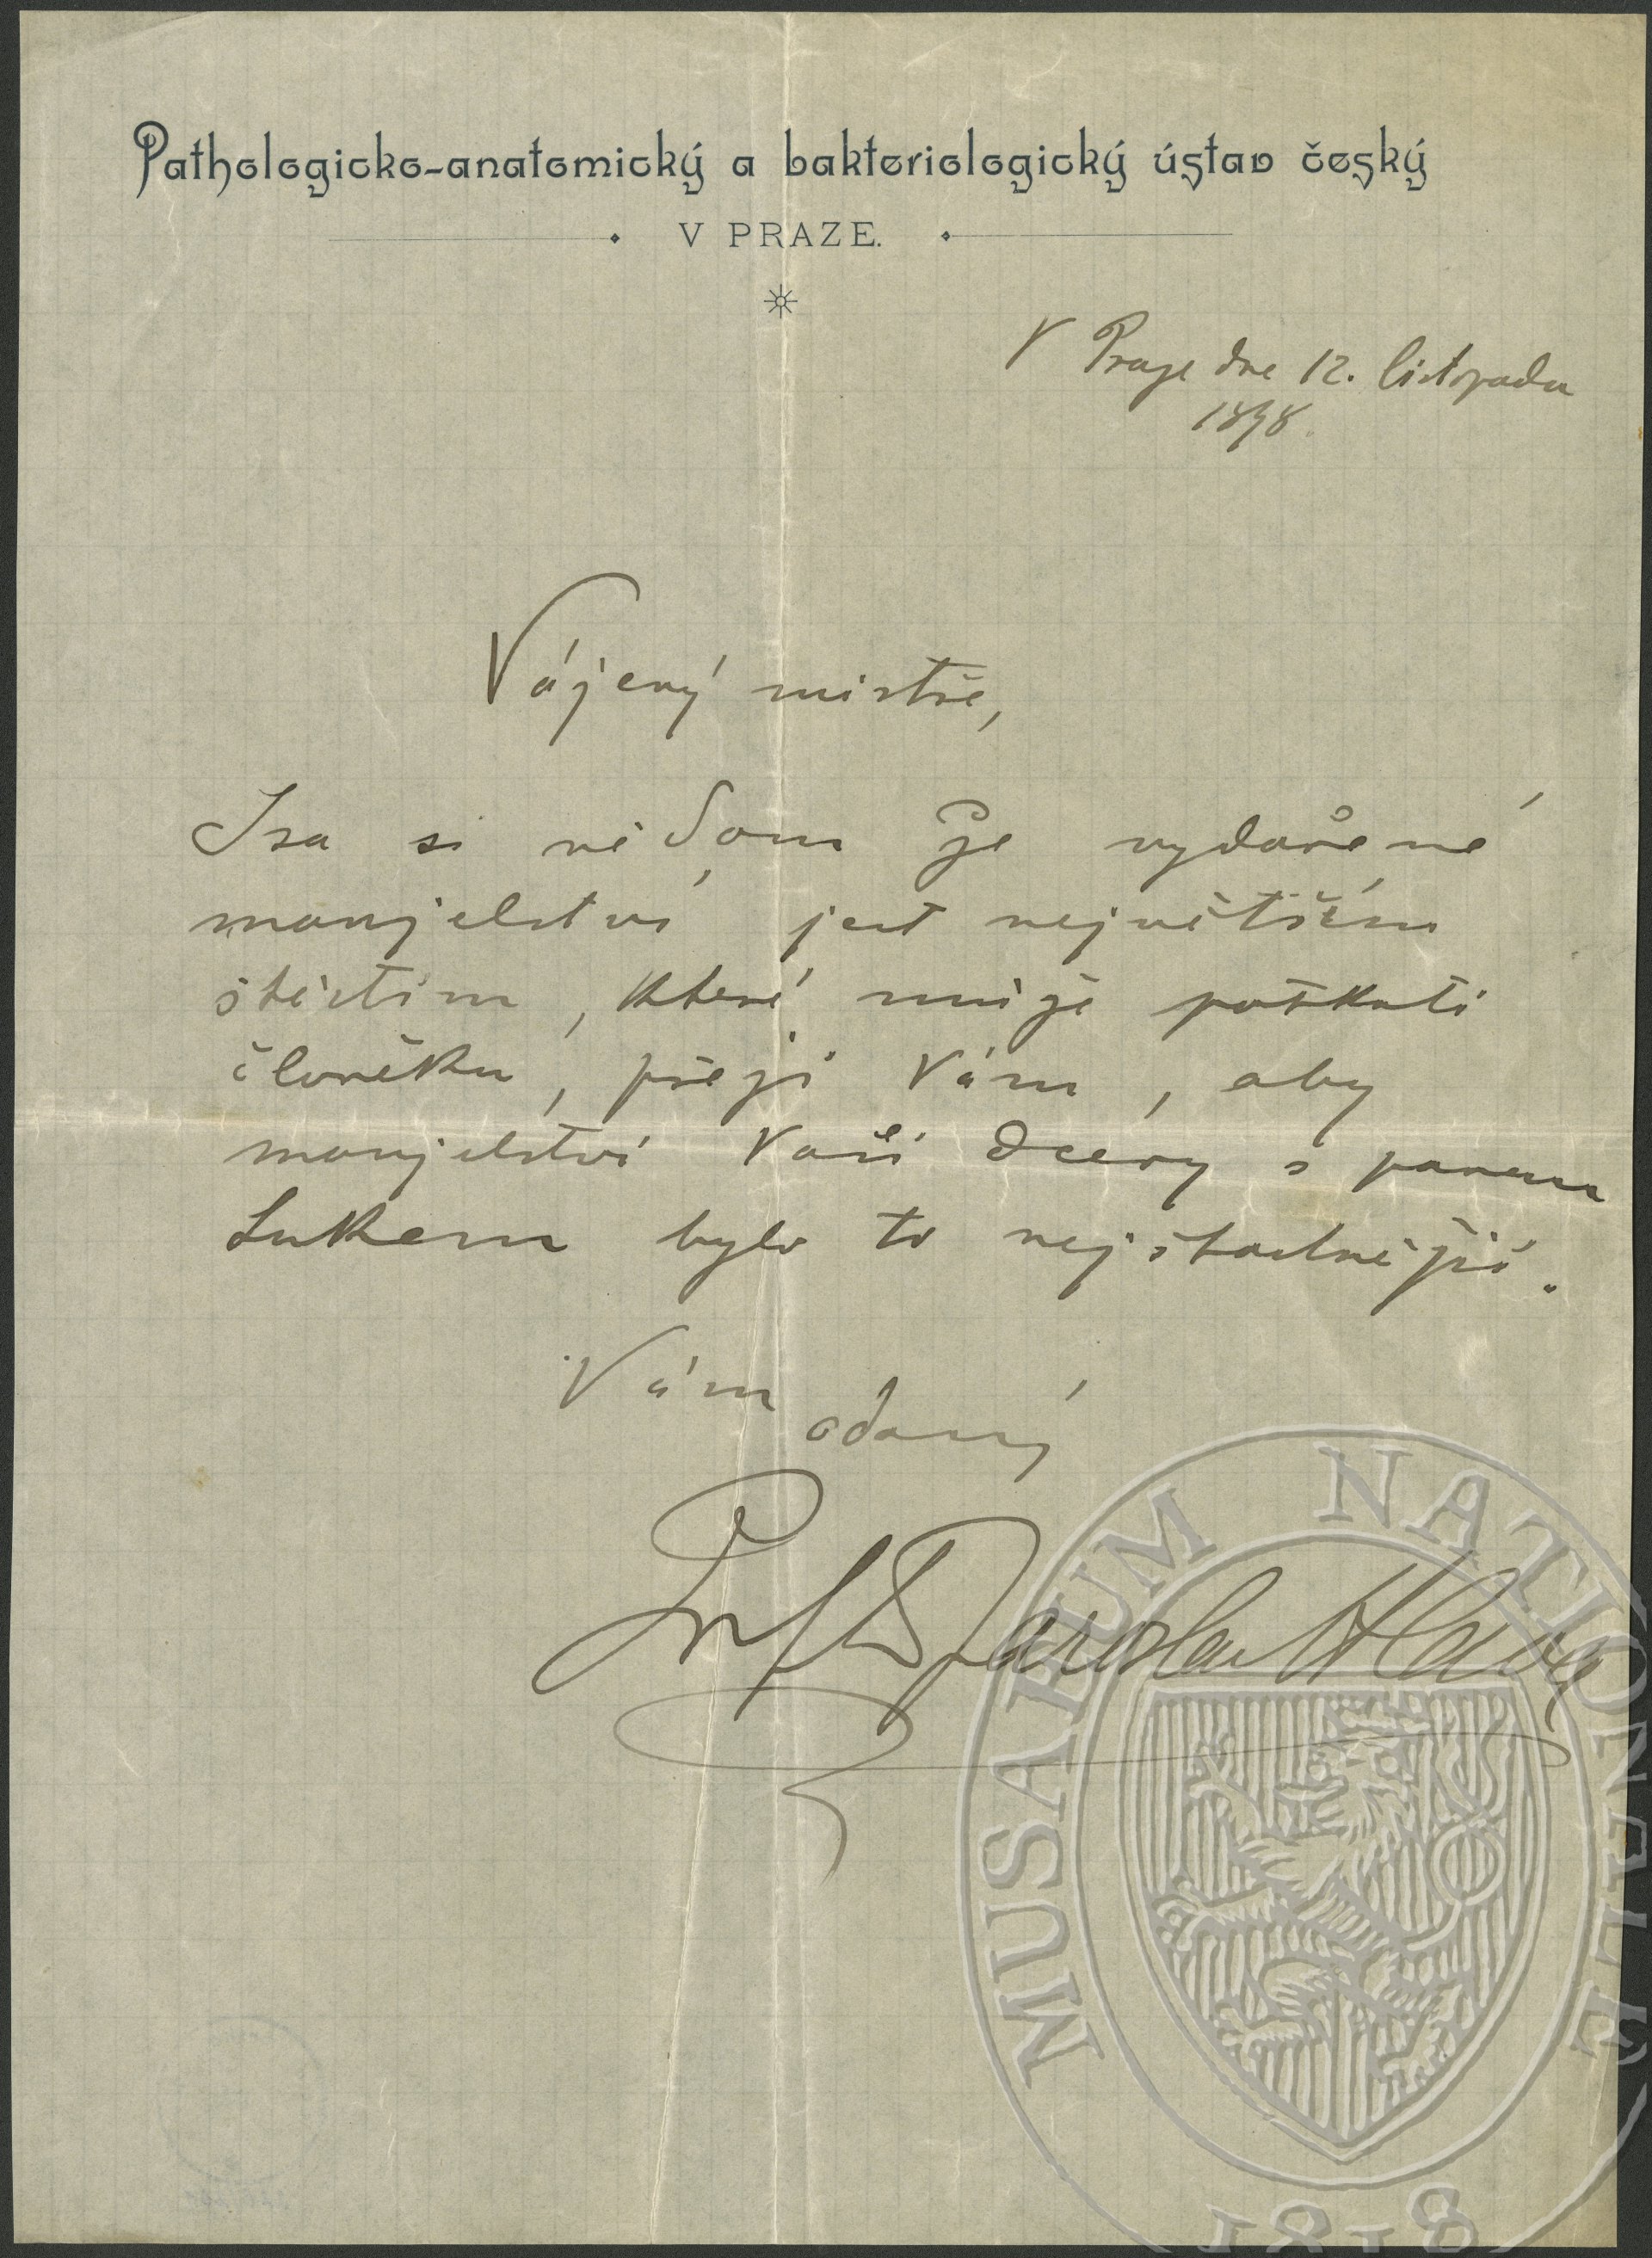 Pathologicko-anatomický a bakteriologický ústav český
V PRAZE.
V Praze dne 12. listopadu
1898.
Vážený mistře,
Jsa si vědom že vydařené
manželství jest největším
štěstím, které může potkati
člověka, přeji Vám, aby
manželství Vaší dcery s panem
Sukem bylo to nejšťastnější.
Vám
oddaný
Prof Dr Jaroslav Hlava
MUSARUM NATIONALE
1818